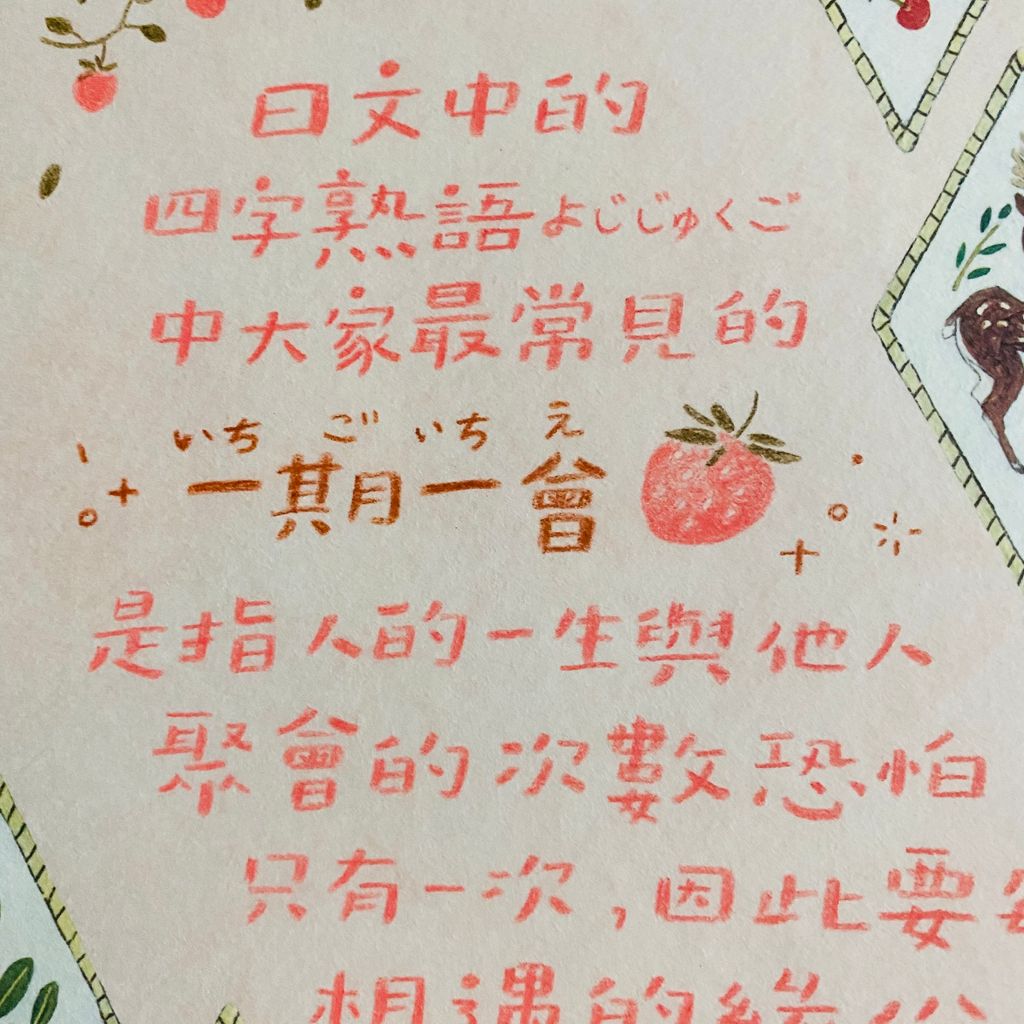 日文中的
四字熟語よじじゅくご
中大家最常見的
いち ご いち え
一期一會
是指人的一生與他人
聚會的次數恐怕
只有一次，因此要
相遇的緣份